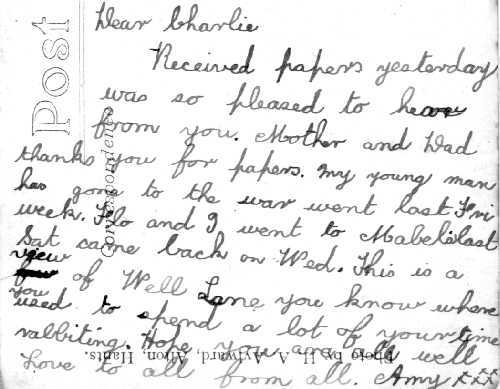 Dear Charlie
Received papers yesterday
was so pleased to hear
from you. Mother and Dad
thanks you for papers. My young man
has gone to the war went last Fri
week. Flo and I went to Mabel's last
Sat came back on Wed. This is a
view of Well Lane you know where
you used to spend a lot of your time
rabbiting. Hope you are all well
Love to all from all. Amy xxx
Post
Correspondence
Photo by H. A. Aylward, Alton, Hants.